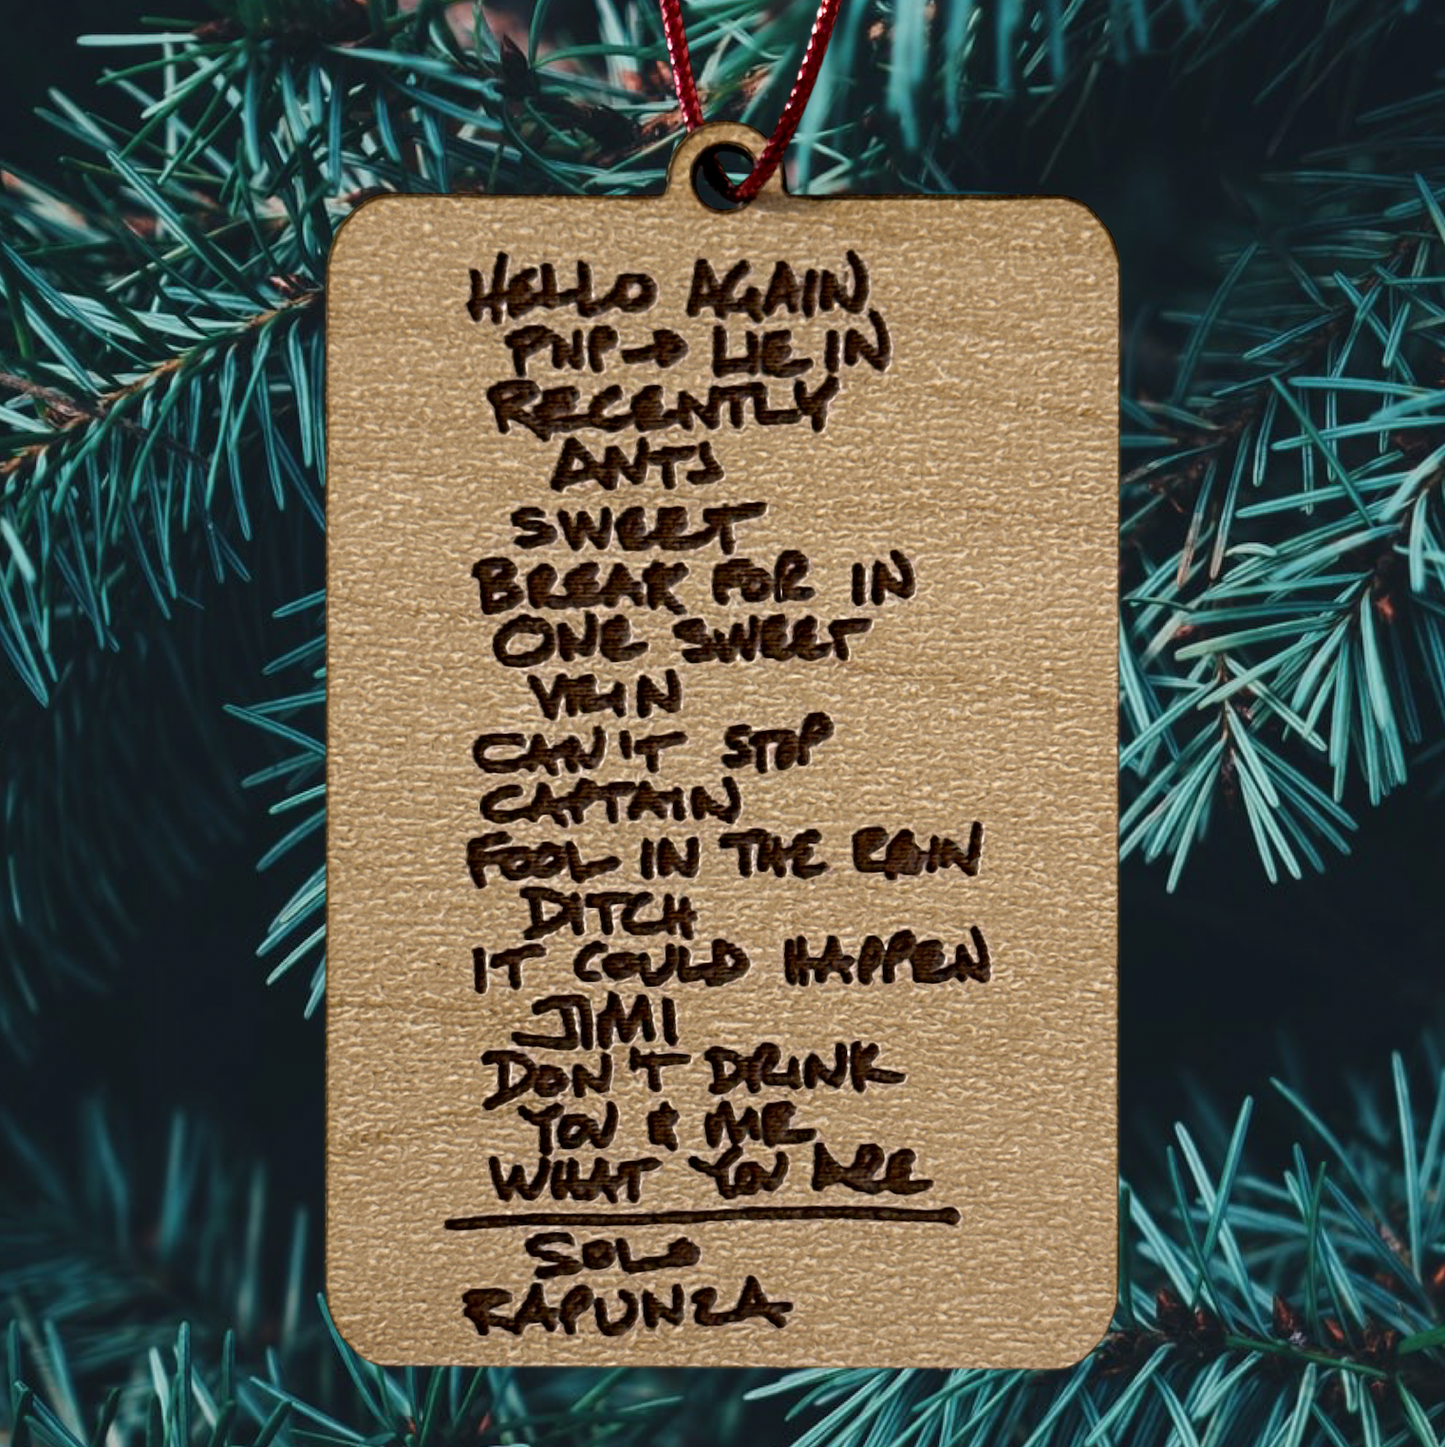 HELLO AGAIN
PNP→ LIE IN
RECENTLY
ANTS
SWEET
BREAK FOR IN
ONE SWEET
VEIN
CAN'T STOP
CAPTAIN
FOOL IN THE RAIN
DITCH
IT COULD HAPPEN
JIMI
DON'T DRINK
YOU & ME
WHAT YOU ARE
SOLO
RAPUNZA